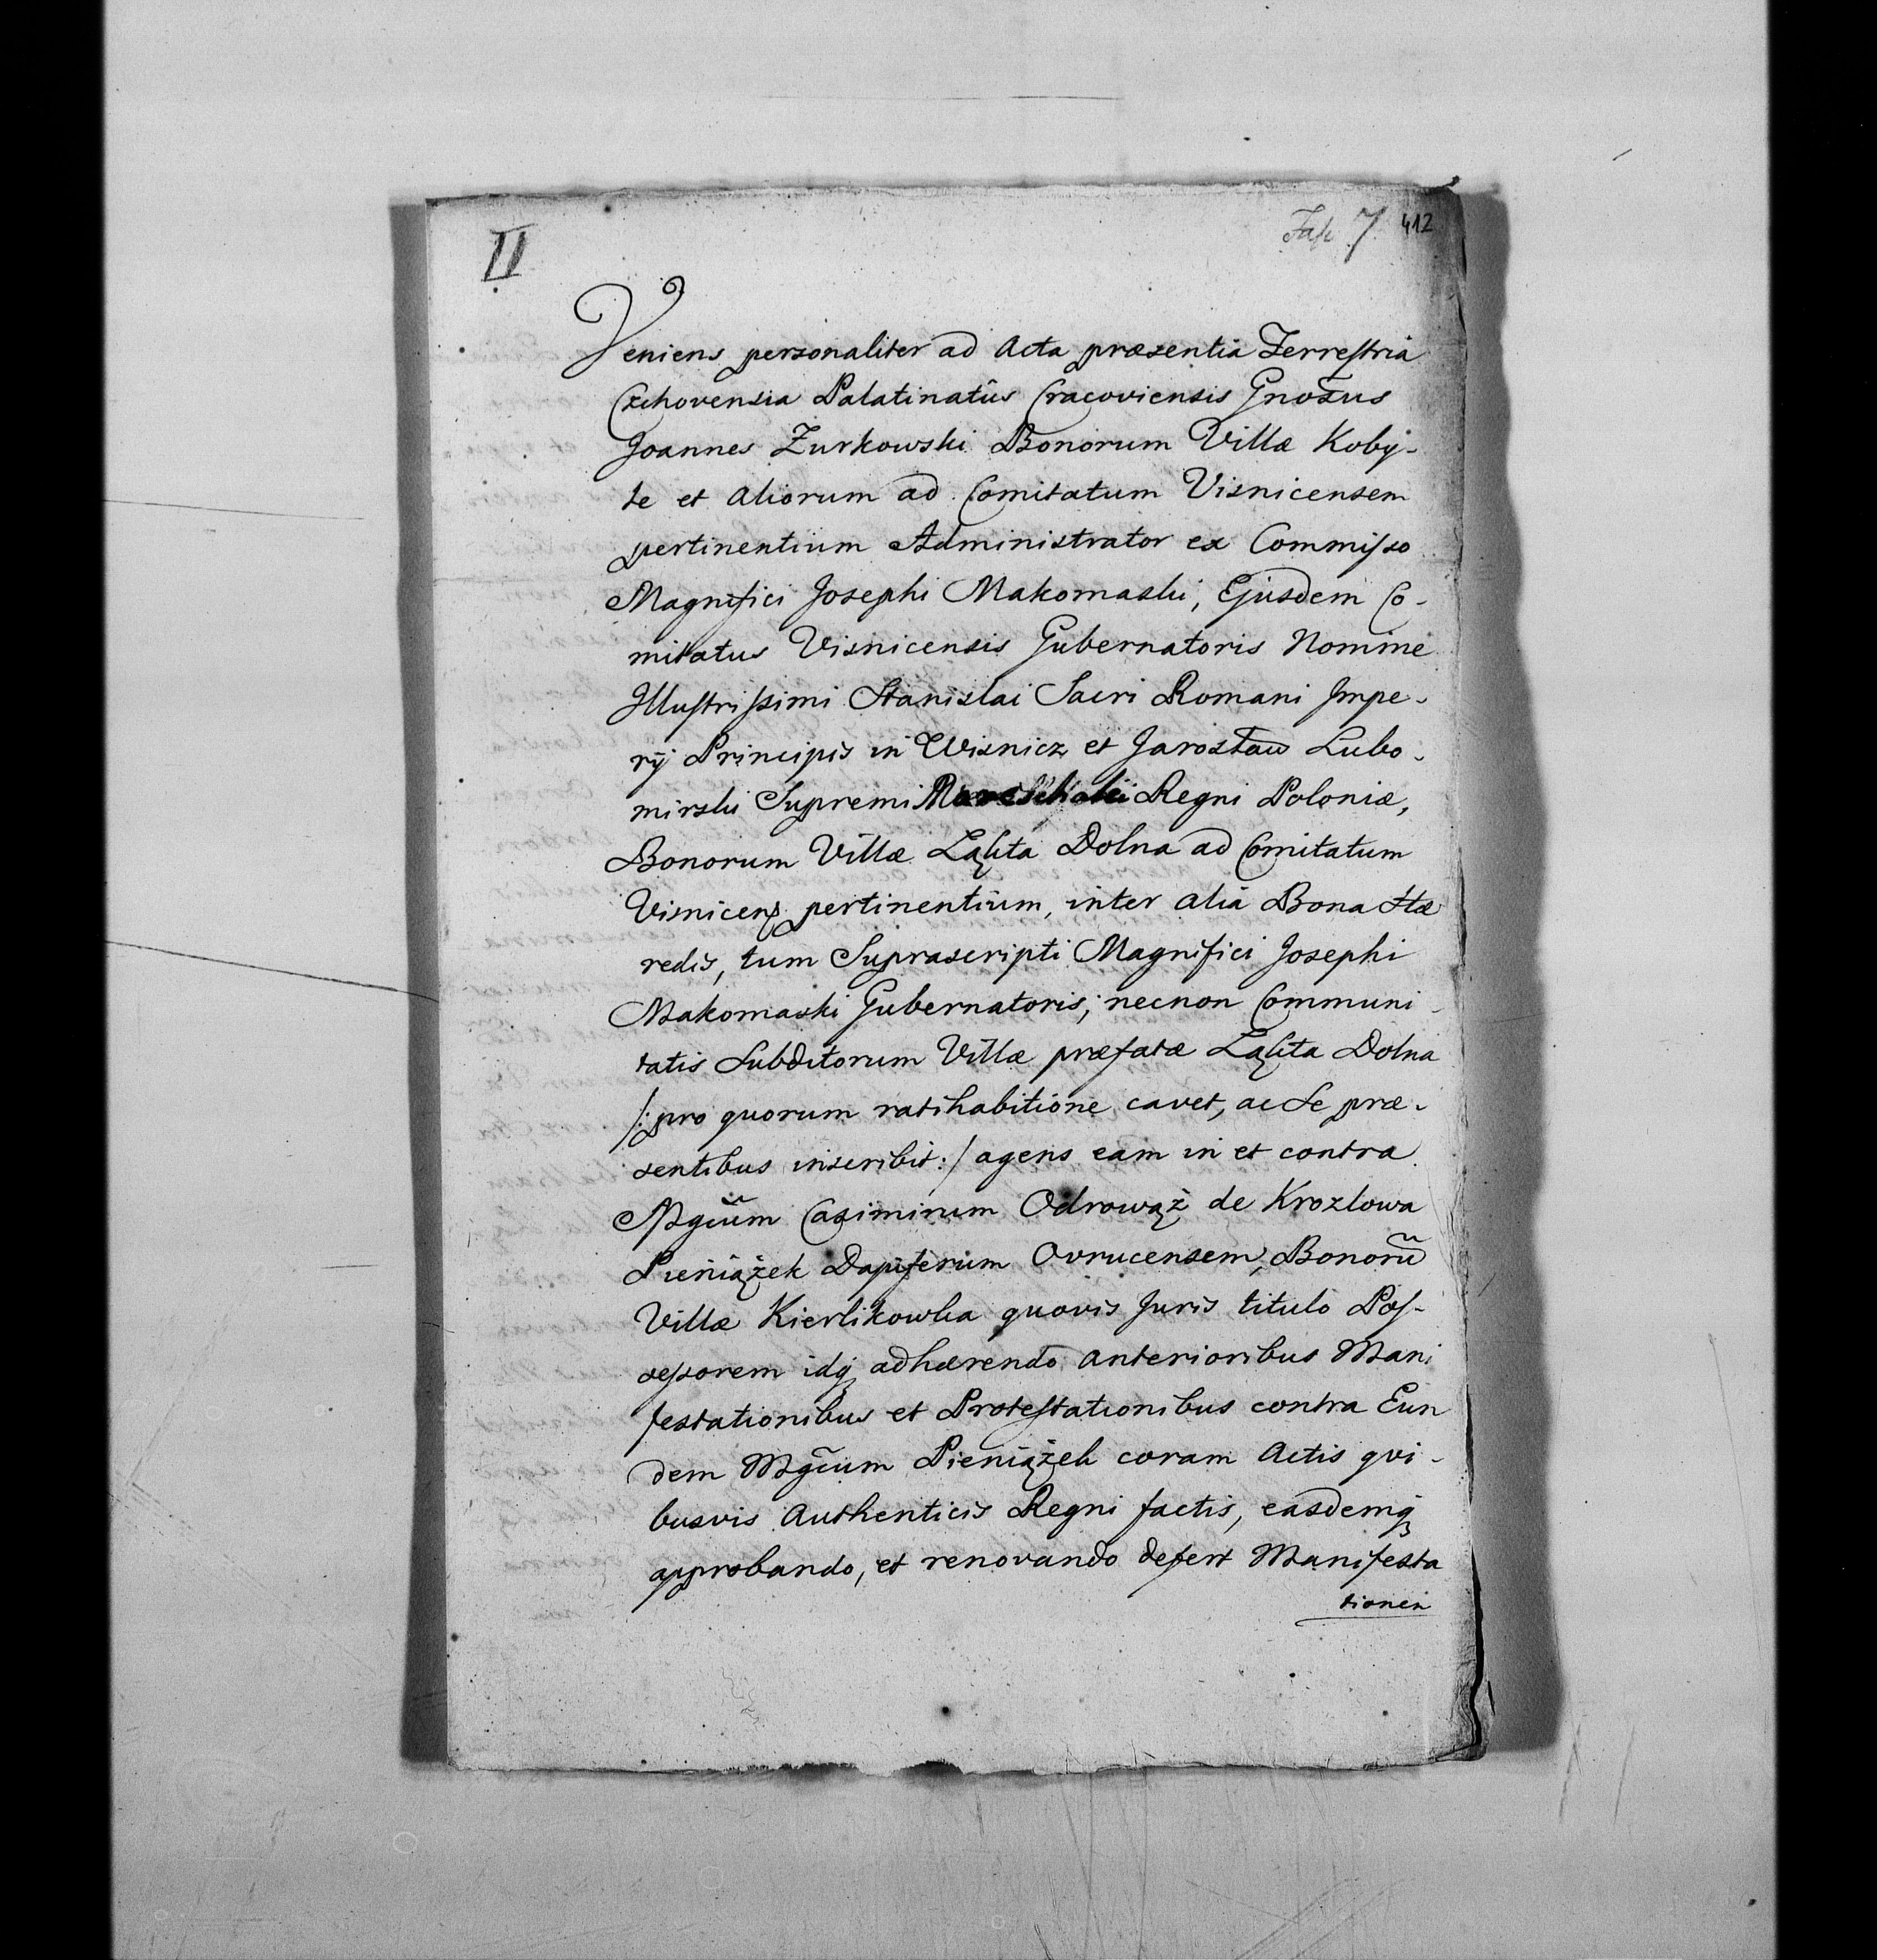 II
Fasc 7. 412
Veniens personaliter ad Acta præsentia Terrestria
Czchovensia Palatinatûs Cracoviensis Gnosus
Joannes Zurkowski Bonorum Villæ Koby-
le et aliorum ad Comitatum Visnicensem
pertinentium Administrator ex Commisso
Magnifici Josephi Makomaski, Ejusdem Co-
mitatus Visnicensis Gubernatoris Nomine
Illustrissimi Stanislai Sacri Romani Impe-
rÿ Principis in Wisnicz et Jarosław Lubo-
mirski Supremi Mareschalci Regni Poloniæ,
Bonorum Villæ Łąkta Dolna ad Comitatum
Visnicens pertinentium, inter alia Bona Hæ
redis, tum Suprascripti Magnifici Josephi
Makomaski Gubernatoris; necnon Communi-
tatis Subditorum Villæ præfatæ Łąkta Dolna
/: pro quorum ratihabitione cavet, ac Se præ-
sentibus inscribit :/ agens eam in et contra
Mgcum Casimirum Odrowąż de Krozlowa
Pieniążek Dapiferum Ovrucensem, Bonorũ
Villæ Kierlikowka quovis Juris titulo Pos-
sessorem idq adhærendo anterioribus Mani
festationibus et Protestationibus contra Eun
dem Mgcum Pieniążek coram Actis qvi-
busvis Authenticis Regni factis, easdemq
approbando, et renovando defert Manifesta
tionem